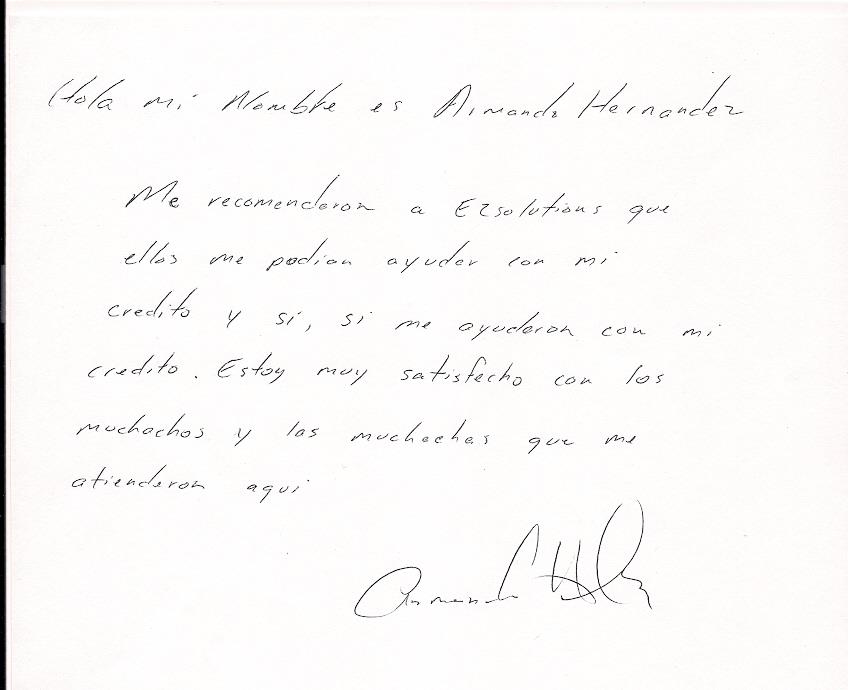 Hola mi Nombre es Armando Hernandez
Me recomendaron a EZsolutions que
ellos me podian ayudar con mi
credito y si, si me ayudaron con mi
credito. Estoy muy satisfecho con los
muchachos y las muchachas que me
atienderon aqui
Armando